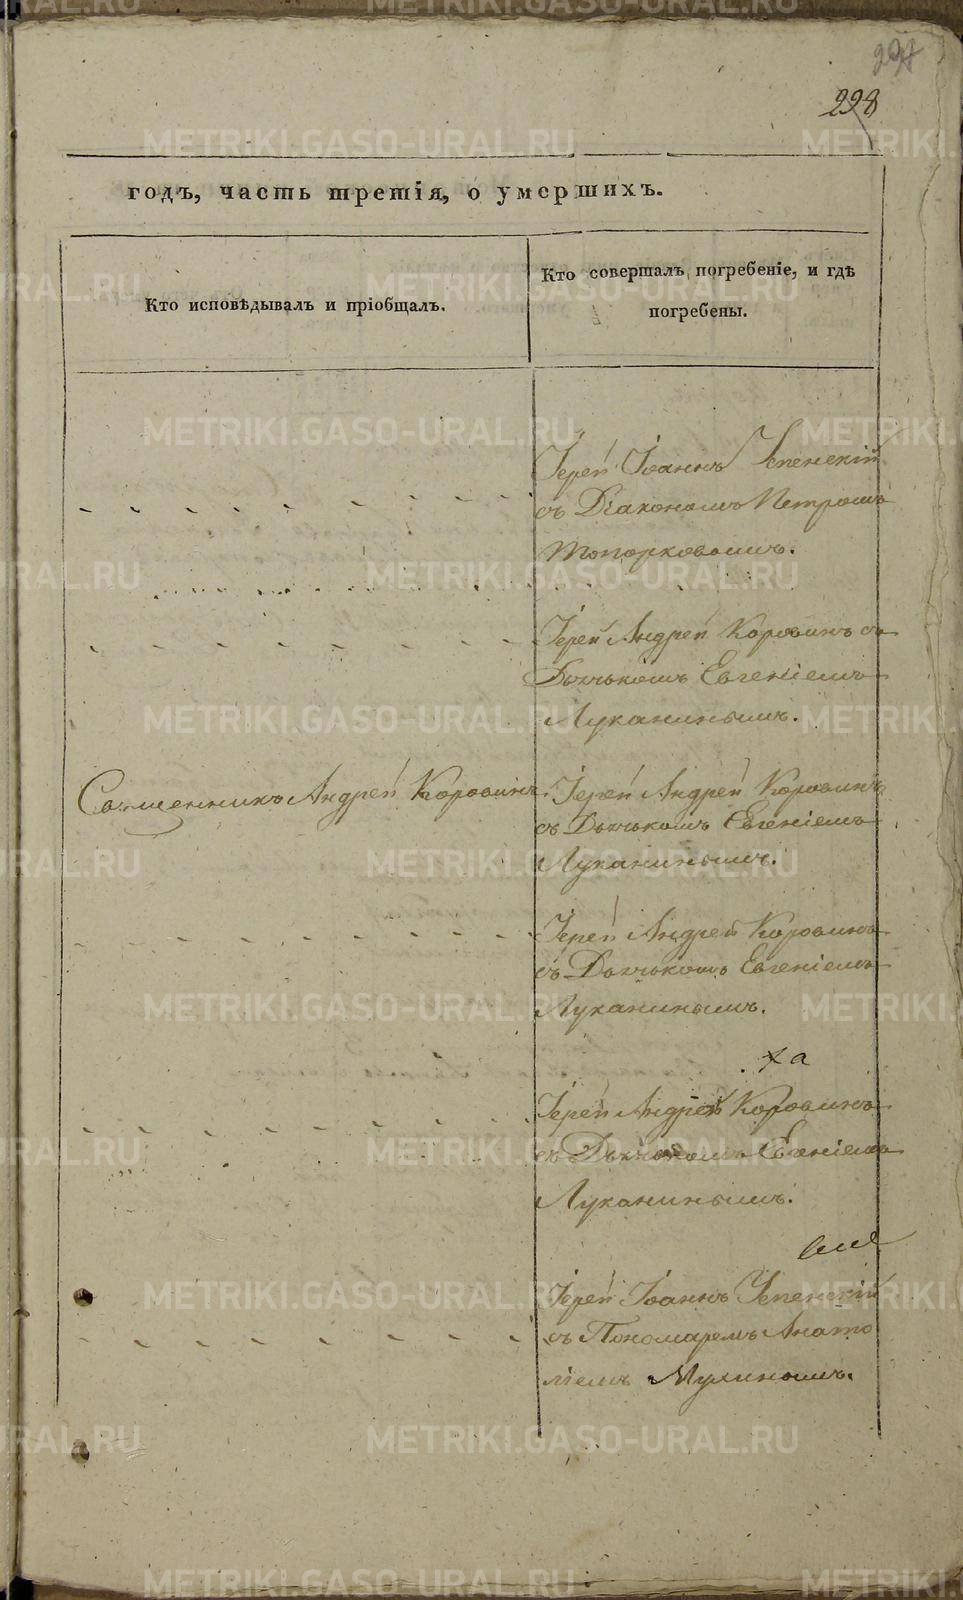 228
годъ, часть третія, о умершихъ.
Кто исповѣдывалъ и пріобщалъ.
Кто совершалъ погребеніе, и гдѣ
погребены.
Іерей Іоаннъ Успенскій
съ Діакономъ Петромъ
Топорковымъ.
Іерей Андрей Коровинъ съ
Дьячькомъ Евгеніемъ
Лукинымъ.
Священникъ Андрей Коровинъ.
Іерей Андрей Коровинъ
съ Дьячькомъ Евгеніемъ
Луканинымъ.
Іерей Андрей Коровинъ
съ Дьячькомъ Евгеніемъ
Луканинымъ.
Іерей Андрей Коровинъ
съ Дьячькомъ Евгеніемъ
Луканинымъ.
Іерей Іоаннъ Успенскій
съ Пономаремъ Анато
ліемъ Мухинымъ.
METRIKI.GASO-URAL.RU